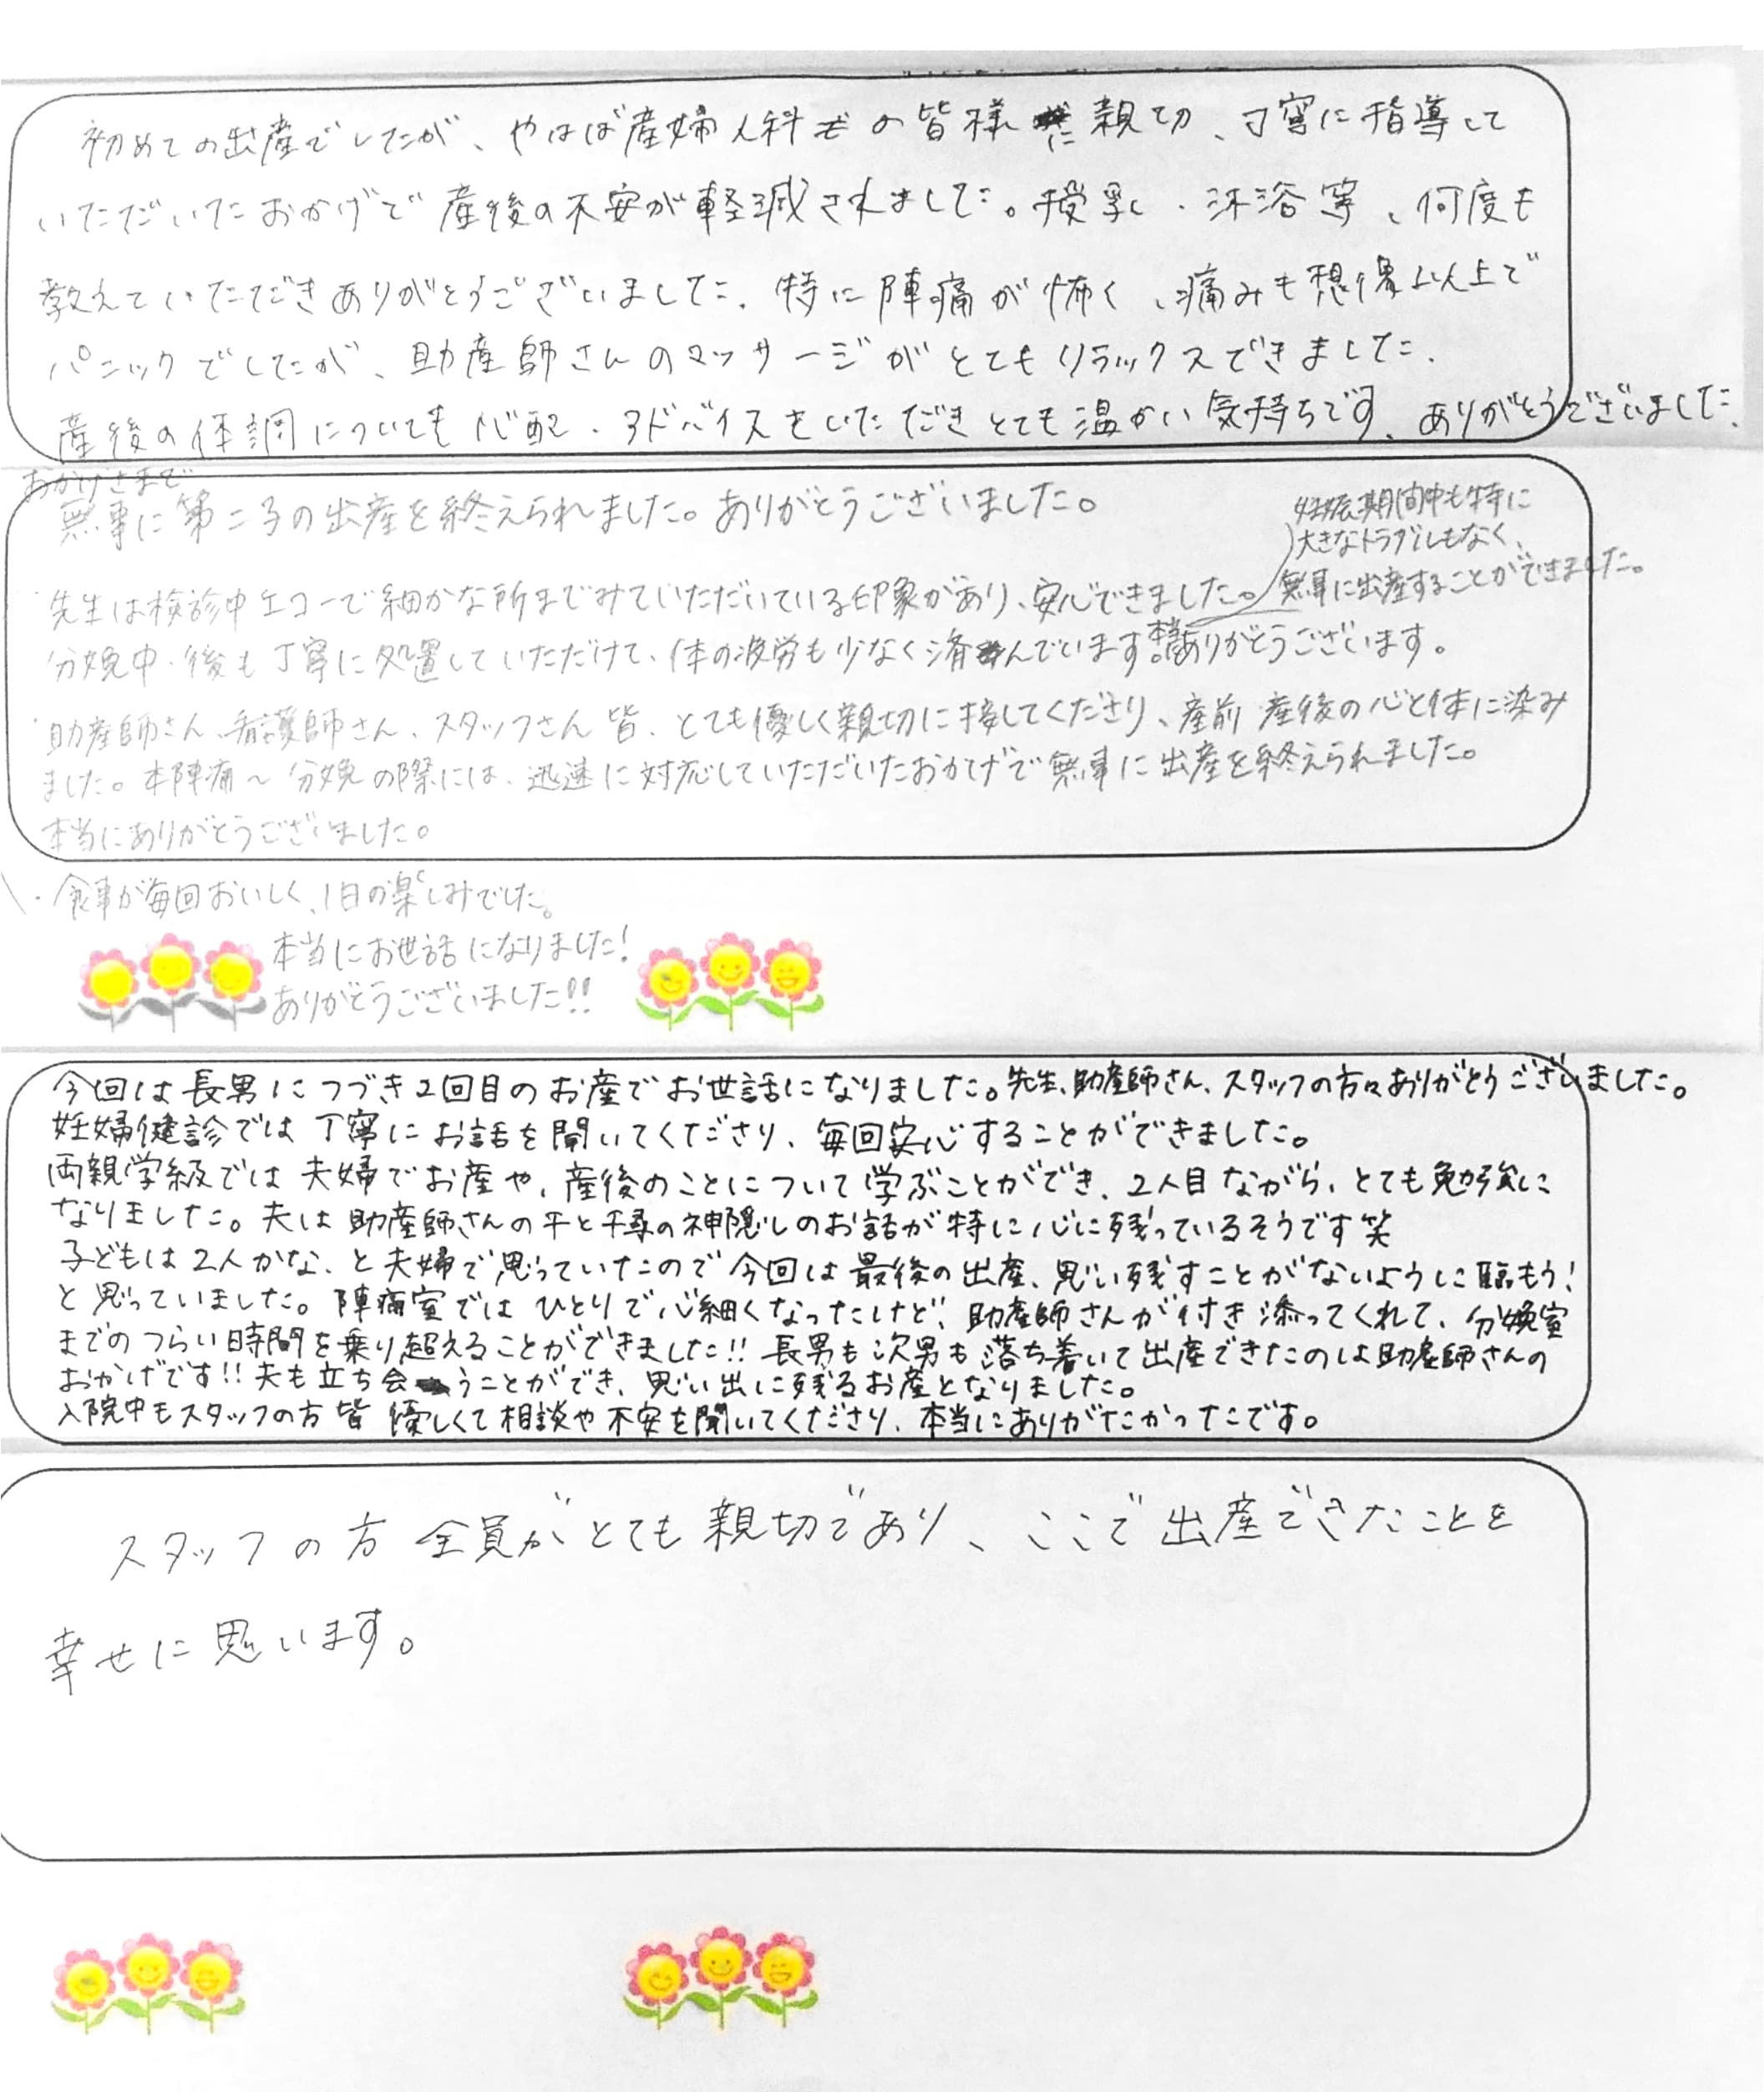 初めての出産でしたが、やはば産婦人科の皆様に親切、丁寧に指導して
いただいたおかげで産後の不安が軽減されました。授乳・沐浴等、何度も
教えていただきありがとうございました。特に陣痛が怖く、痛みも想像以上で
パニックでしたが、助産師さんのマッサージがとてもリラックスできました。
産後の体調についても心配・アドバイスをいただきとても温かい気持ちです。ありがとうございました。
おかげさまで
無事に第二子の出産を終えられました。ありがとうございました。
・先生は検診中エコーで細かな所までみていただいている印象があり、安心できました。
妊娠期間中も特に
大きなトラブルもなく、
無事に出産することができました。
本当にありがとうございます。
分娩中・後も丁寧に処置していただけて、体の疲労も少なく済んでいます。
・助産師さん、看護師さん、スタッフさん皆、とても優しく親切に接してくださり、産前産後の心と体に染み
ました。本陣痛〜分娩の際には、迅速に対応していただいたおかげで無事に出産を終えられました。
本当にありがとうございました。
・食事が毎回おいしく、1日の楽しみでした。
本当にお世話になりました!
ありがとうございました!!
今回は長男につづき2回目のお産でお世話になりました。先生、助産師さん、スタッフの方々ありがとうございました。
妊婦健診では丁寧にお話を聞いてくださり、毎回安心することができました。
両親学級では夫婦でお産や、産後のことについて学ぶことができ、2人目ながら、とても勉強に
なりました。夫は助産師さんの千と千尋の神隠しのお話が特に心に残っているそうです笑
子どもは2人かな、と夫婦で思っていたので今回は最後の出産、思い残すことがないように臨もう!
と思っていました。陣痛室ではひとりで心細くなったけど、助産師さんが付き添ってくれて、分娩室
までのつらい時間を乗り超えることができました!! 長男も次男も落ち着いて出産できたのは助産師さんの
おかげです!! 夫も立ち会うことができ、思い出に残るお産となりました。
入院中もスタッフの方皆優しくて相談や不安を聞いてくださり、本当にありがたかったです。
スタッフの方全員がとても親切であり、ここで出産できたことを
幸せに思います。